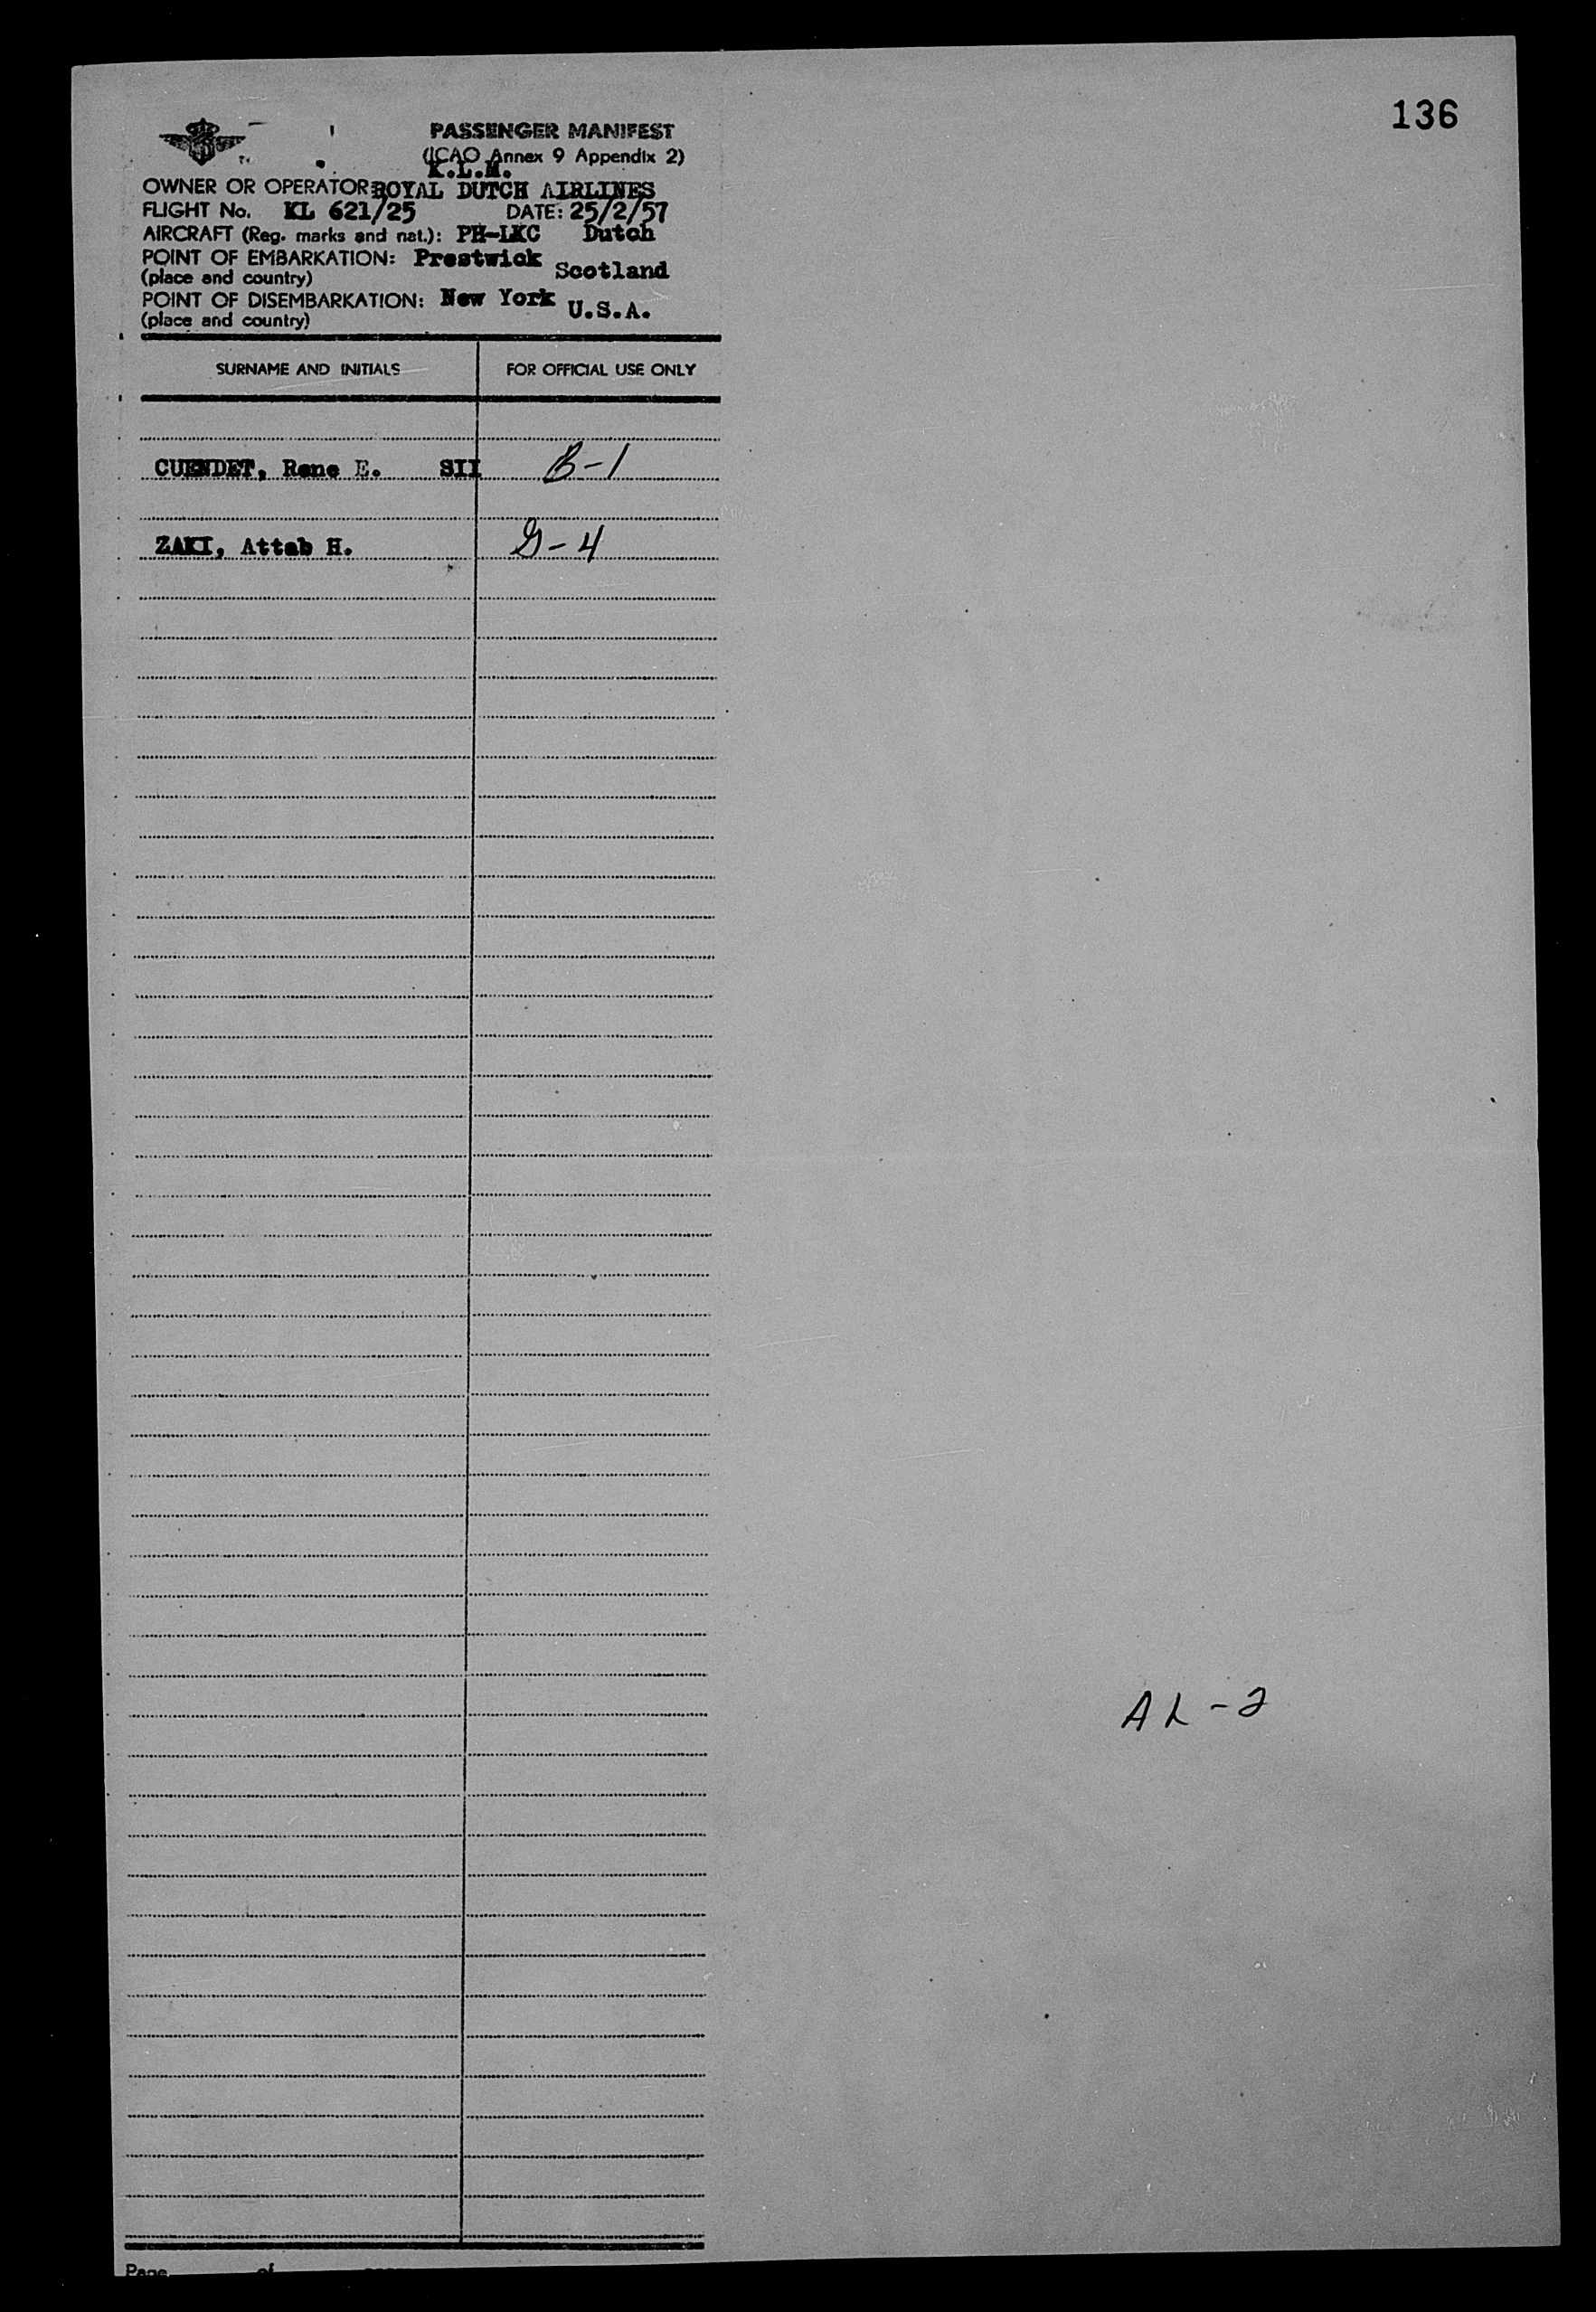 136
PASSENGER MANIFEST
(ICAO Annex 9 Appendix 2)
K.L.M.
OWNER OR OPERATOR: ROYAL DUTCH AIRLINES
FLIGHT No. KL 621/25 DATE: 25/2/57
AIRCRAFT (Reg. marks and nat.): PH-LKC Dutch
POINT OF EMBARKATION: Prestwick Scotland
(place and country)
POINT OF DISEMBARKATION: New York U.S.A.
(place and country)
SURNAME AND INITIALS FOR OFFICIAL USE ONLY
CUENDET, Rene E. SII B-1
ZAKI, Attab H. G-4
AL-2
Page of